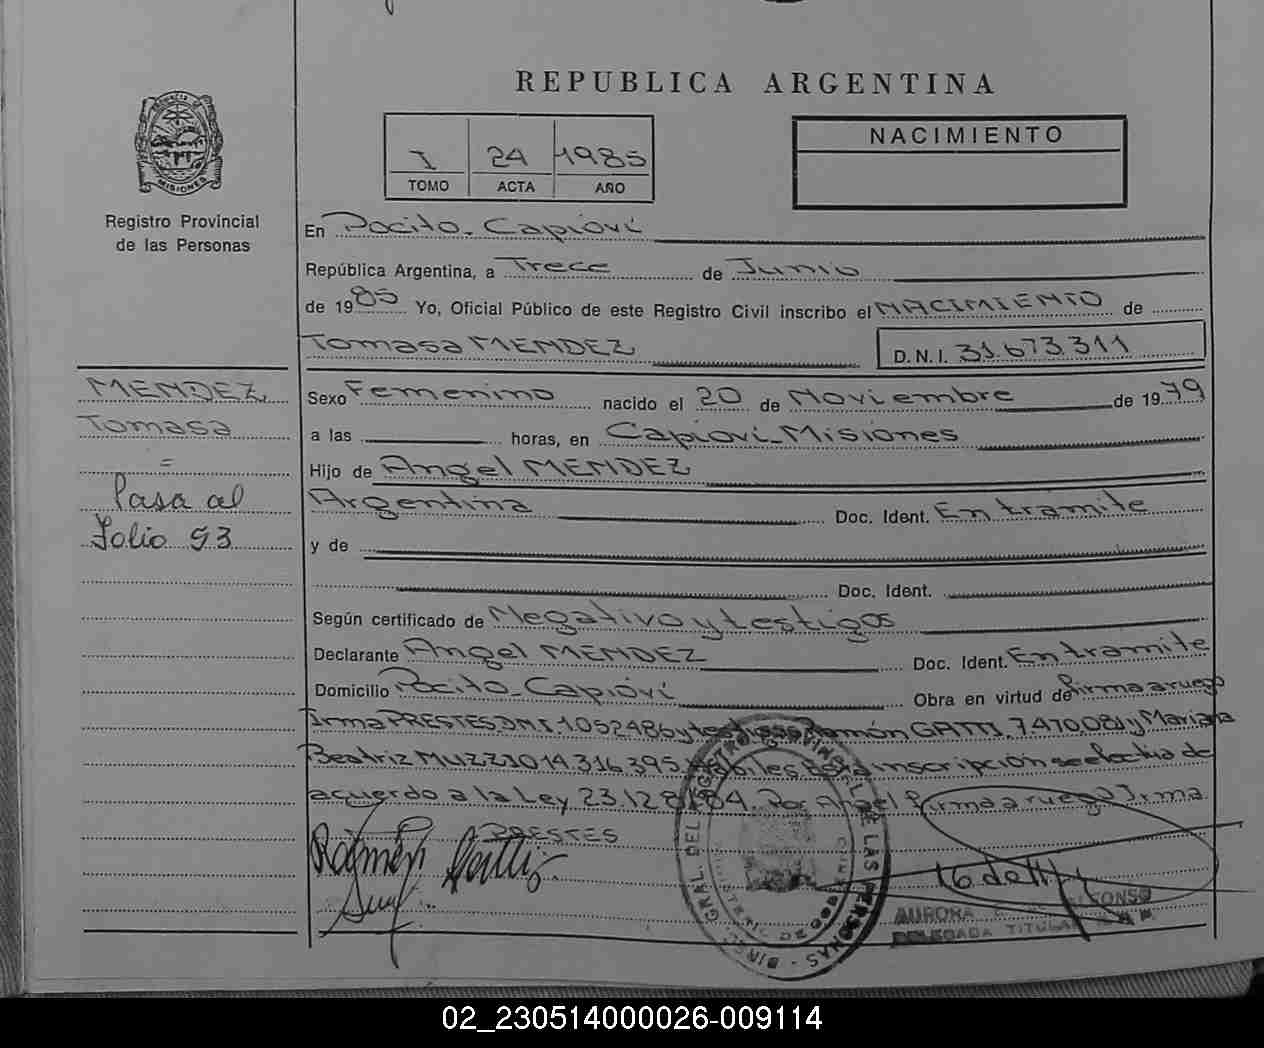 REPUBLICA ARGENTINA
PROVINCIA DE
MISIONES
Registro Provincial
de las Personas
I 24 1985
TOMO ACTA AÑO
NACIMIENTO
En Pocito_Capioví
República Argentina, a Trece de Junio
de 1985 Yo, Oficial Público de este Registro Civil inscribo el NACIMIENTO de
Tomasa MENDEZ
D.N.I. 31.673.311
MENDEZ
Tomasa
=
Pasa al
Folio 93
Sexo Femenino nacido el 20 de Noviembre de 1979
a las horas, en Capioví_Misiones
Hijo de Angel MENDEZ
Argentina Doc. Ident. En tramite
y de
Doc. Ident.
Según certificado de Negativo y testigos
Declarante Angel MENDEZ Doc. Ident. En tramite
Domicilio Pocito_Capioví Obra en virtud de firma a ruego
Irma PRESTES D.N.I. 1.052.486 y testigos Ramón GATTI 7.470.081 y Mariana
Beatriz MUZZIO 14.316.395 Habiles Esta inscripción se efectua de
acuerdo a la Ley 23.128/84. Por Angel firma a ruego Irma
PRESTES
Ramón Gatti
GRAL DEL REGISTRO PROVINCIAL DE LAS PERSONAS - DIREC.
MINISTERIO DE GOBIERNO
AURORA ALFONSO
DELEGADA TITULAR
02_230514000026-009114